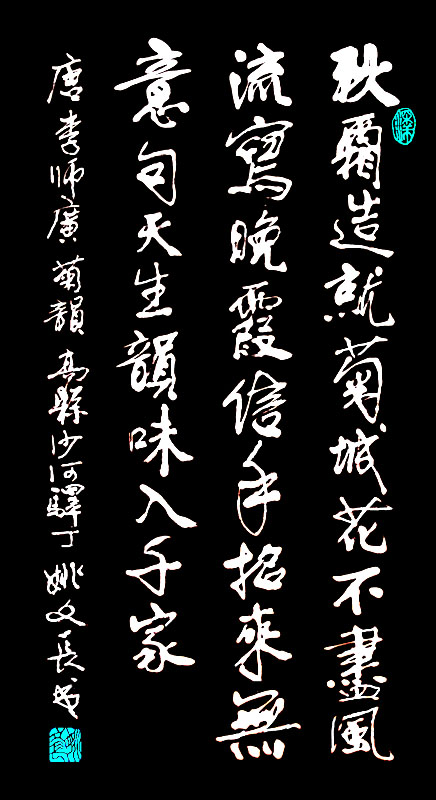 秋霜造就菊城花不盡風
流寫晚霞信手招來無
意句天生韻味入千家
唐李師廣菊韻高縣沙河驛丁姚文長書